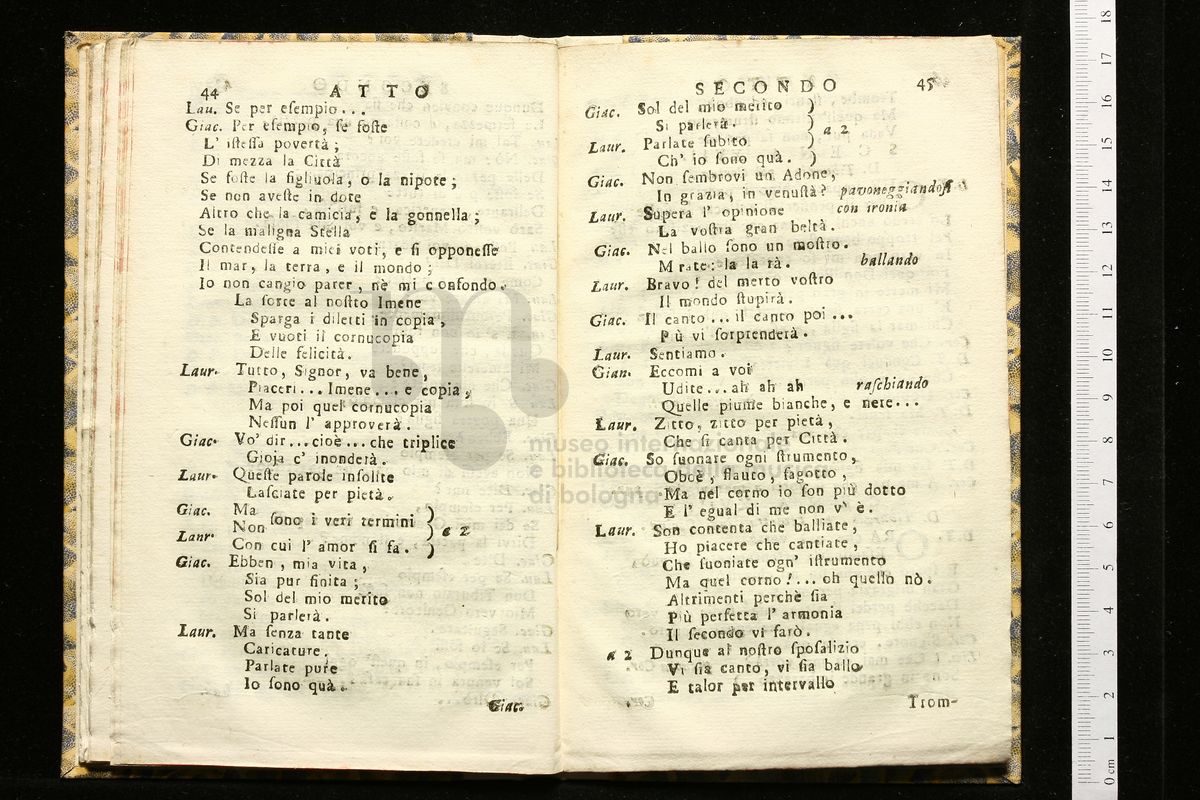 44 ATTO
Lau. Se per eſempio...
Giac. Per eſempio, ſe foſte
L' iſteſſa povertà;
Di mezza la Città
Se foſte la figliuola, o la nipote;
Se non aveſte in dote
Altro che la camicia, e la gonnella;
Se la maligna Stella
Contendeſſe a miei voti, e ſi opponeſſe
Il mar, la terra, e il mondo;
Io non cangio parer, nè mi confondo.
La ſorte al noſtro Imene
Sparga i diletti in copia,
E vuoti il cornucopia
Delle felicità.
Laur. Tutto, Signor, va bene,
Piaceri... Imene... e copia,
Ma poi quel cornucopia
Neſſun l' approverà.
Giac. Vo' dir...cioè...che triplice
Gioja c' inonderà.
Laur. Queſte parole inſolite
Laſciate per pietà.
Giac. Ma
ſono i veri termini
Lanr. Non
a 2
Con cui l' amor ſi fa.
Giac. Ebben, mia vita,
Sia pur finita;
Sol del mio merito
Si parlerà.
Laur. Ma ſenza tante
Caricature,
Parlate pure
Io ſono quà.
Giac.
SECONDO 45
Giac. Sol del mio merito
Si parlerà.
a 2
Laur. Parlate ſubito
Ch' io ſono quà.
Giac. Non ſembrovi un Adone,
In grazia, in venuſtà? pavoneggiandoſi
Laur. Supera l' opinione con ironia
La voſtra gran beltà.
Giac. Nel ballo ſono un moſtro.
M rate: la la rà. ballando
Laur. Bravo! del merto voſtro
Il mondo ſtupirà.
Giac. Il canto... il canto poi...
Più vi ſorprenderà.
Laur. Sentiamo.
Gian. Eccomi a voi
Udite... ah ah ah raſchiando
Quelle piume bianche, e nere...
Laur. Zitto, zitto per pietà,
Che ſi canta per Città.
Giac. So ſuonare ogni ſtrumento,
Oboè, flauto, fagotto,
Ma nel corno io ſon più dotto
E l' egual di me non v' è.
Laur. Son contenta che balliate,
Ho piacere che cantiate,
Che ſuoniate ogn' iſtrumento
Ma quel corno!... oh quello nò.
Altrimenti perchè ſia
Più perfetta l' armonia
Il ſecondo vi farò.
a 2 Dunque al noſtro ſpoſalizio
Vi ſia canto, vi ſia ballo
E talor per intervallo
Trom-
museo internazionale
e biblioteca della musica
di bologna
0 cm 1 2 3 4 5 6 7 8 9 10 11 12 13 14 15 16 17 18